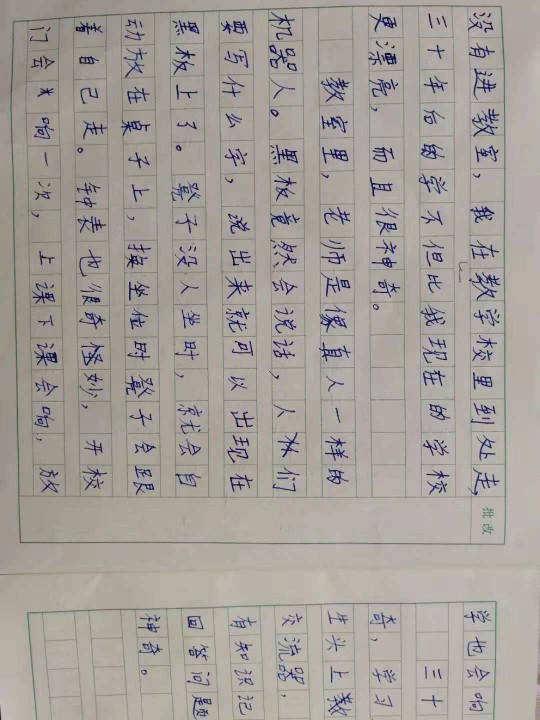 没有进教室，我在教学校里到处走，
三十年后的学不但比我现在的学校
更漂亮，而且很神奇。
教室里，老师是像真人一样的
机器人。黑板竟然会说话，人们
要写什么字，说出来就可以出现在
黑板上了。凳子没人坐时，就会自
动放在桌子上，换坐位时凳子会跟
着自己走。钟表也很奇怪妙，开校
门会响一次，上课下课会响，放
批改
学也会响
三十
奇，学习
生头上教
交流器，
有知识记
回答问题
神奇。